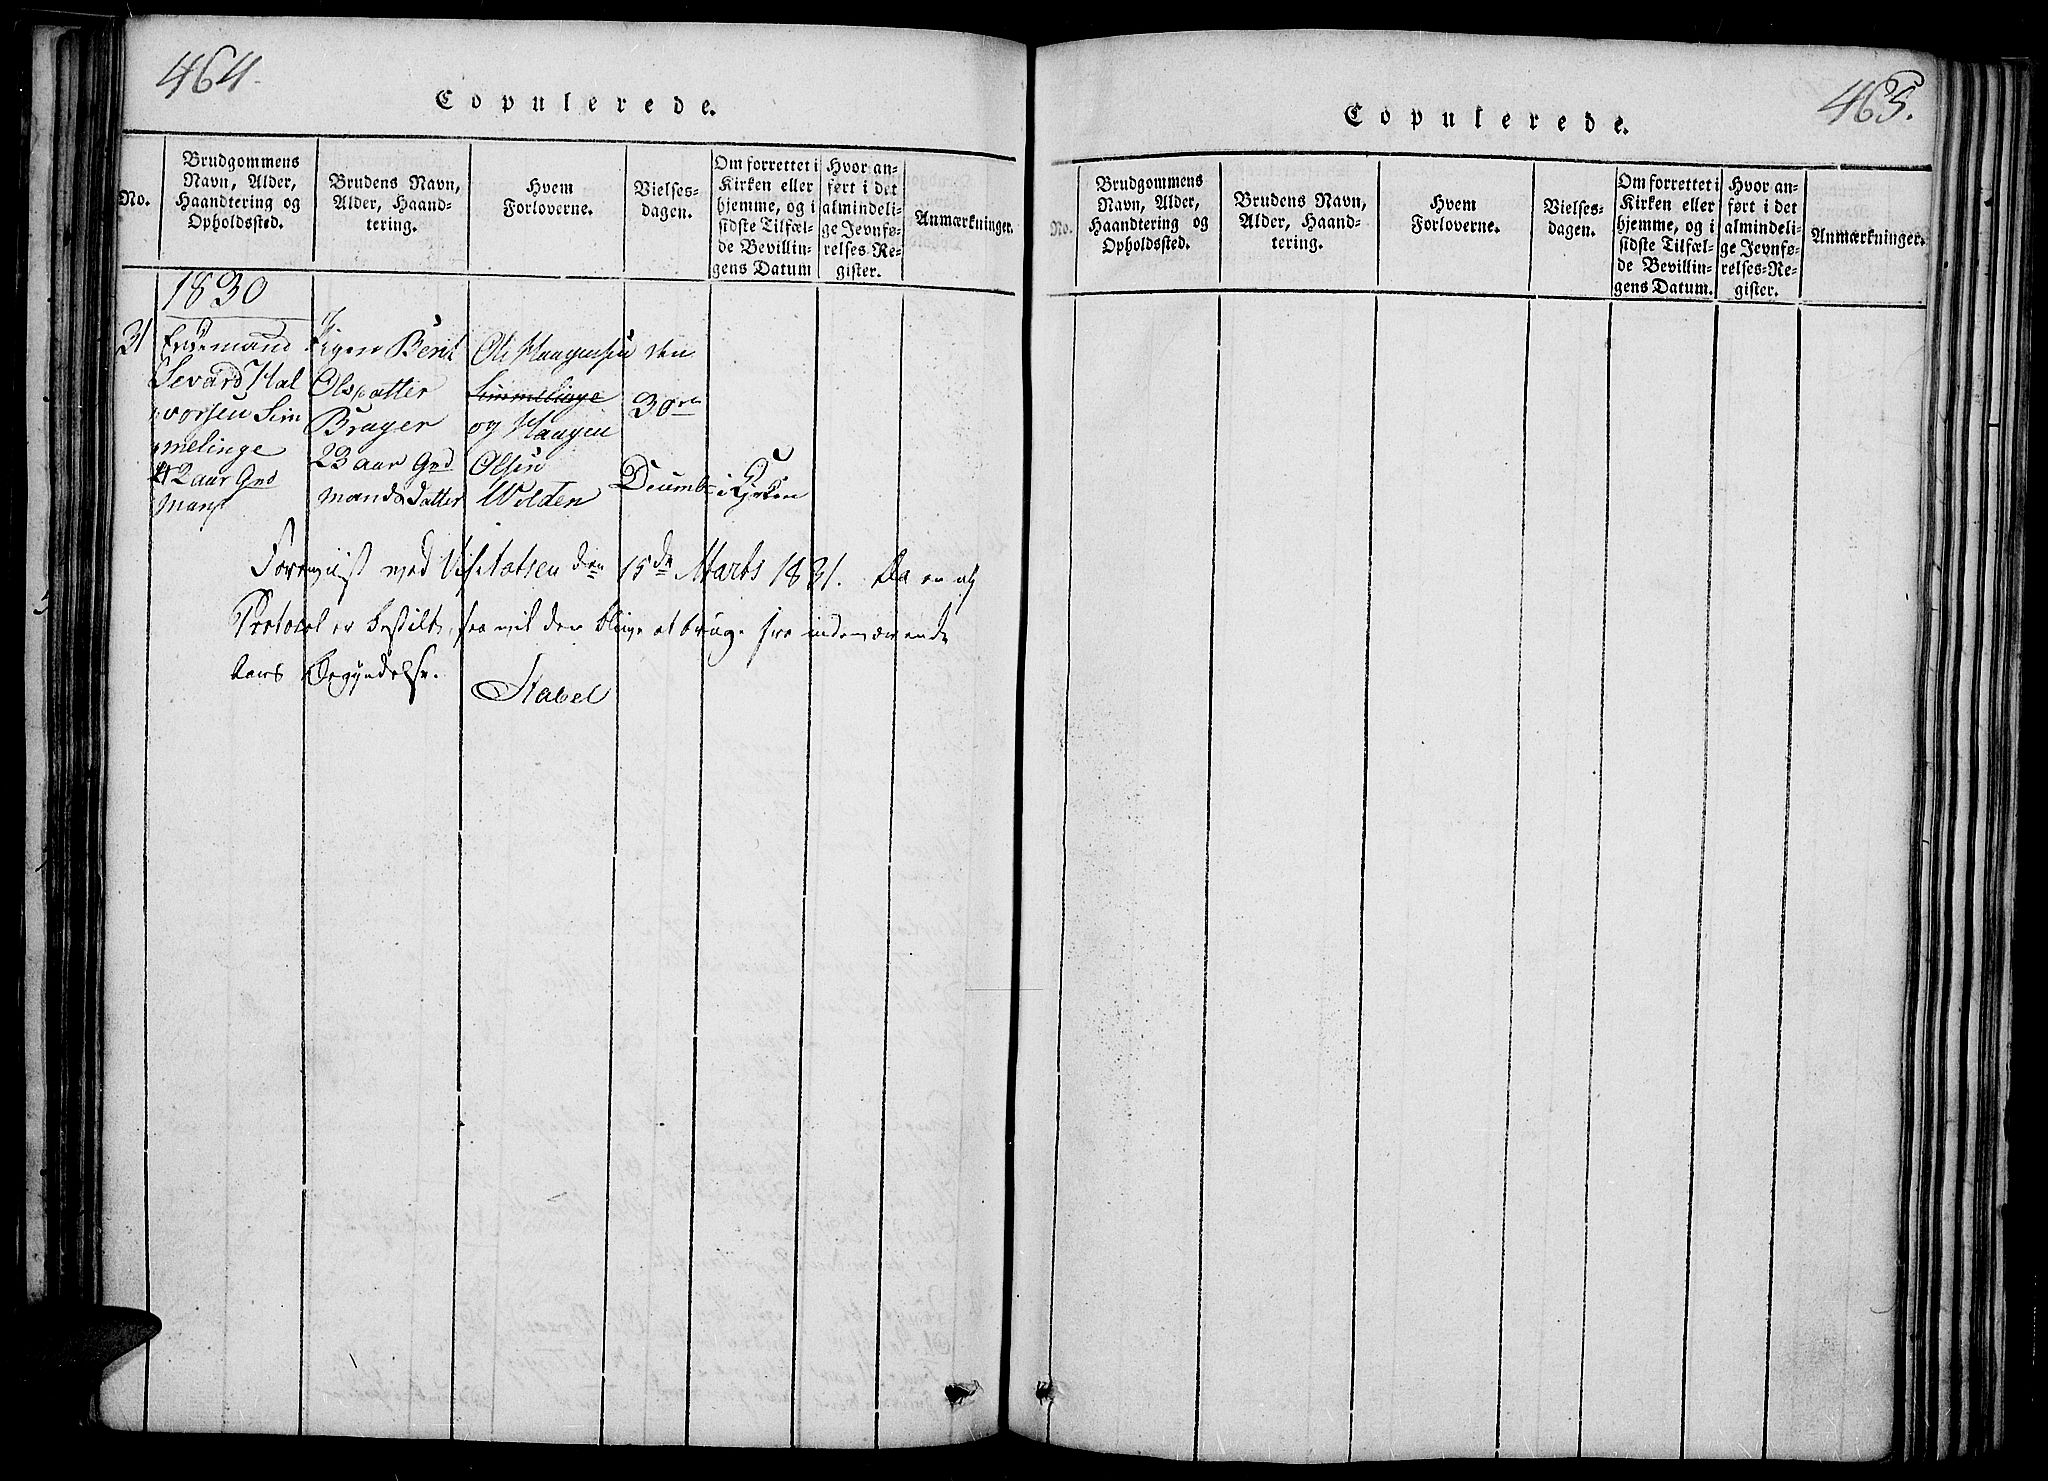 464.
Copulerede.
No.
Brudgommens
Navn, Alder,
Haandtering og
Opholdssted.
Brudens Navn,
Alder, Haand-
tering.
Hvem
Forloverne.
Vielses-
dagen.
Om forrettet i
Kirken eller
hjemme, og i
sidste Tilfæl-
de Bevillin-
gens Datum
Hvor an-
ført i det
almindeli-
ge Jevnfø-
relses-Re-
gister.
Anmærkninger.
1830
31
Enkemand
Sevard Hal
vorsen Sim
melinge
42 aar Grd
mand
Pigen Berit
Olsdatter
Brager
23 aar Grd
mands Datter
Ole Haagensen
Simmelinge
og Haagen
Olsen
Wolden
den
30te
Decembr
i Kjrken
Foreviist ved Visitatsen den 15de Marts 1831. Da en ny
Protocol er bestilt, saa vil den blive at bruge fra indeværende
Aars Begyndelse.
Stabel
465.
Copulerede.
No.
Brudgommens
Navn, Alder,
Haandtering og
Opholdssted.
Brudens Navn,
Alder, Haand-
tering.
Hvem
Forloverne.
Vielses-
dagen.
Om forrettet i
Kirken eller
hjemme, og i
sidste Tilfæl-
de Bevillin-
gens Datum.
Hvor an-
ført i det
almindeli-
ge Jevnfø-
relses-Re-
gister.
Anmærkninger.